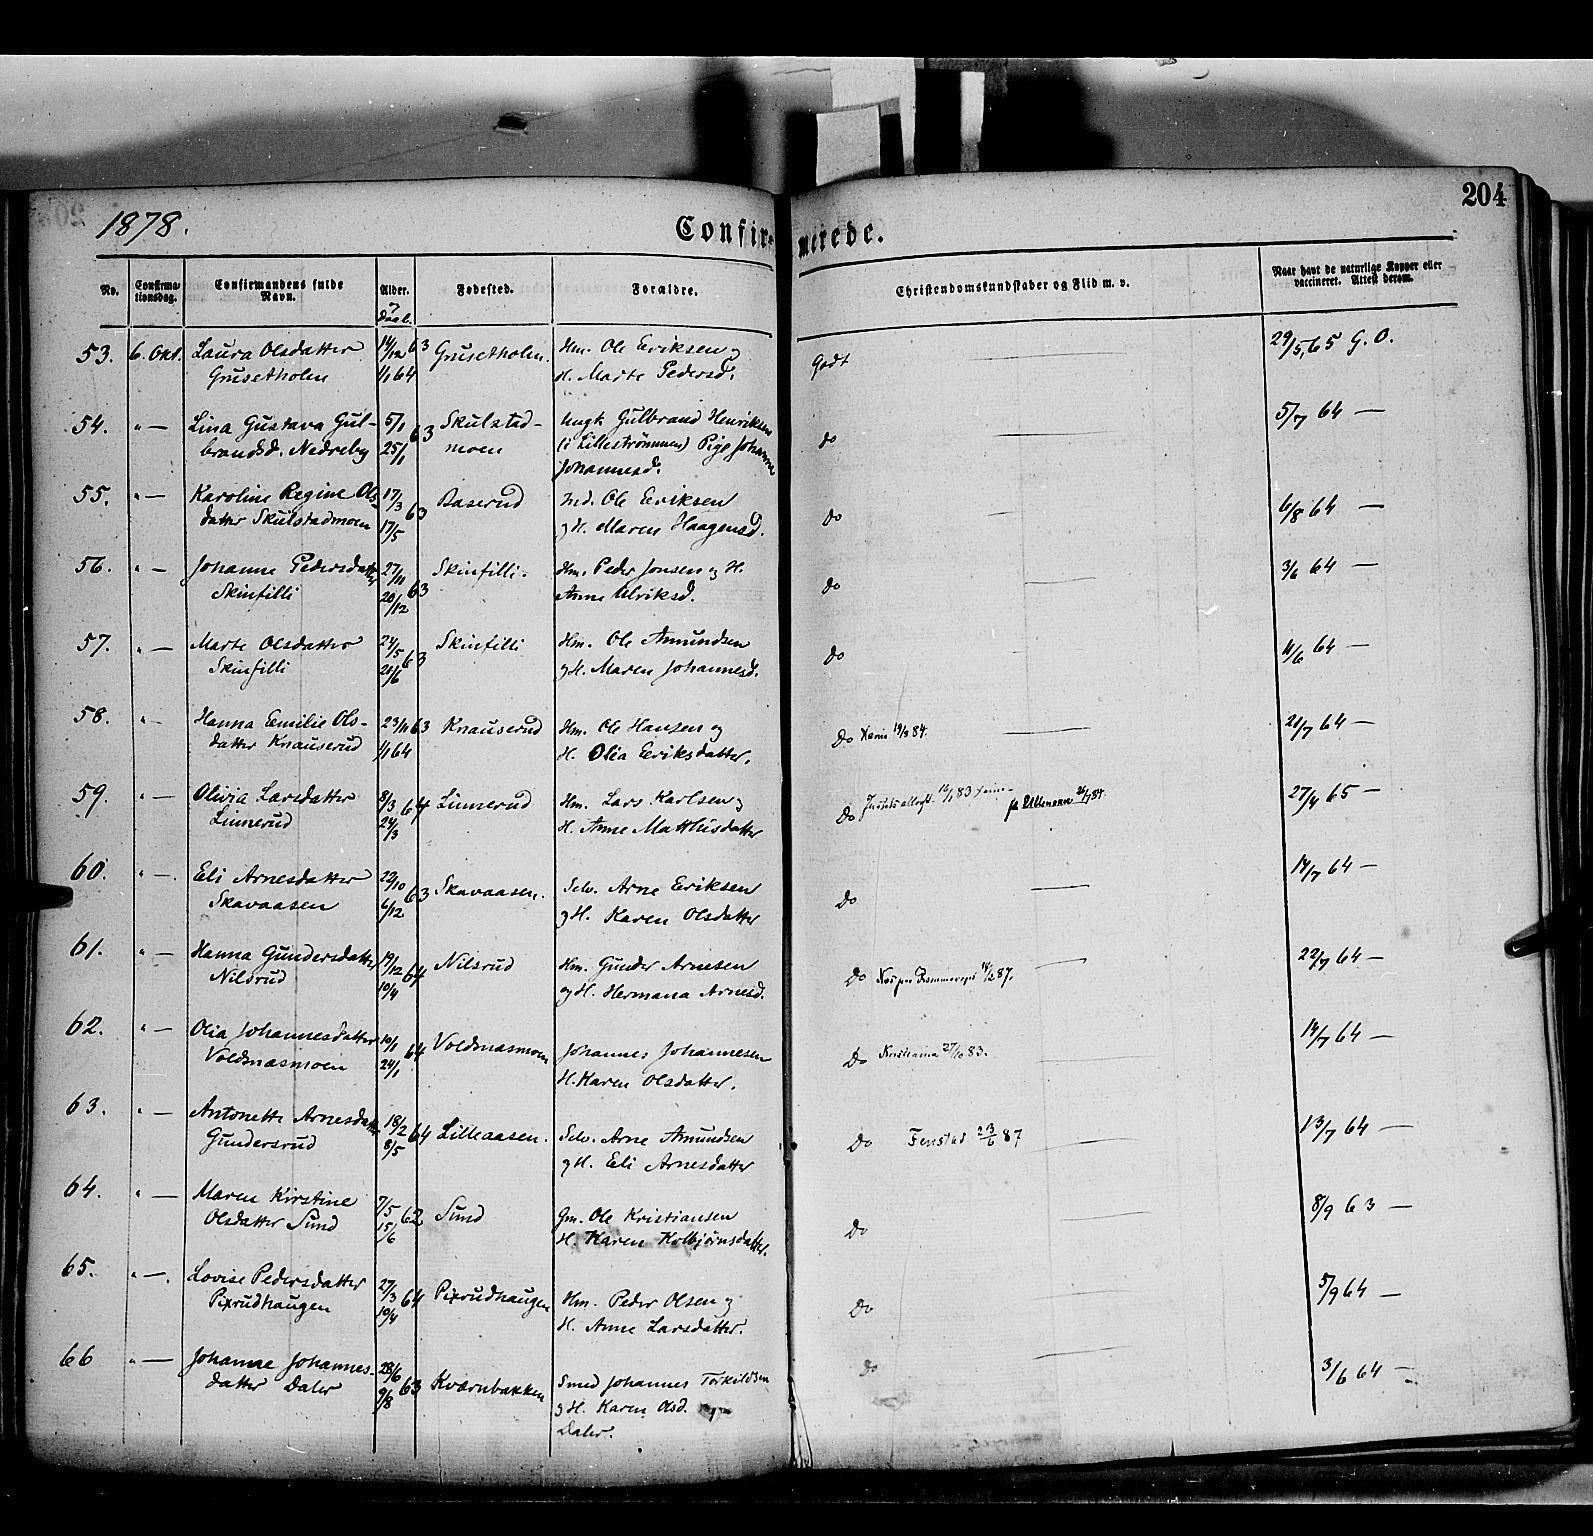 204
1878.
Confirmerede.
No.
Confirma-
tionsdag.
Confirmandens fulde
Navn.
Alder.
Daab.
Fødested.
Forældre.
Christendomskundskaber og Flid m. v.
Naar havt de naturlige Kopper eller
vaccineret. Attest derom.
53. 6. Okt. Laura Olsdatter 14/12 63 Grusetholm. Hm. Ole Eriksen og Godt 29/5 65 G. O.
Grusetholm 1/1 64 H. Marte Pedersd.
54. " — Lina Gustava Gul- 5/1 63 Skulstad- Ungk. Gulbrand Henriksen do 5/7 64 —
brandsd. Nedreby 25/1 moen (i Lillestrømmen) Pige Johanne
Johannesd.
55. " — Karoline Regine Ols- 17/3 63 Baserud Ind. Ole Eriksen do 6/8 64 —
datter Skulstadmoen 17/5 og H. Maren Haagensd.
56. " — Johanne Pedersdatter 27/11 63 Skinfilli. Hm. Peder Jonsen og H. do 3/6 64 —
Skinfilli 20/12 Anne Ulriksd.
57. " — Marte Olsdatter 24/5 63 Skinfilli Hm. Ole Amundsen do 11/6 64 —
Skinfilli 21/6 og H. Maren Johannesd.
58. " — Hanna Emilie Ols- 23/11 63 Knauserud Hm. Ole Hansen og do 19/3 84. 21/7 64 —
datter Knauserud 1/1 64 H. Olia Eriksdatter.
59. " — Olivia Larsdatter 8/3 64 Linnerud Hm. Lars Karlsen og do 83 84. 27/4 65 —
Linnerud 24/3 H. Anne Matthisdatter
60. " — Eli Arnesdatter 22/10 63 Skavaasen. Selv. Arne Eriksen do 14/7 64 —
Skavaasen 6/12 og H. Karen Olsdatter
61. " — Hanna Gundersdatter 19/12 64 Nilsrud Hm. Gunder Arnesen do 87. 22/7 64 —
Nilsrud 10/4 og H. Hermana Arnesd.
62. " — Olia Johannesdatter 10/1 64 Voldmasmoen Johannes Johannesen do Kristiania 27/10 83. 14/7 64 —
Voldmasmoen 24/1 H. Karen Olsdatter.
63. " — Antonette Arnesdatter 18/2 64 Lilleaasen. Selv. Arne Amundsen do Fenstad 23/6 87 13/7 64 —
Gundersrud 8/5 og H. Eli Arnesdatter
64. " — Maren Kirstine 7/5 62 Sund Gm. Ole Kristiansen do 8/9 63 —
Olsdatter Sund 15/6 H. Karen Kolbjørnsdatter.
65. " — Lovise Pedersdatter 27/3 64 Pixrudhaugen Hm. Peder Olsen og do 5/9 64 —
Pixrudhaugen 10/4 H. Anne Larsdatter.
66 " — Johanne Johannes- 28/6 63 Kværnbakken Smed Johannes Torkildsen do 3/6 64 —
datter Daler 9/8 og H. Karen Olsd.
Daler.